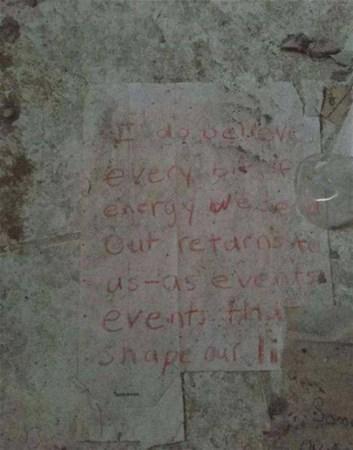 I do believe
every bit of
energy we send
out returns to
us-as events
events that
shape our li